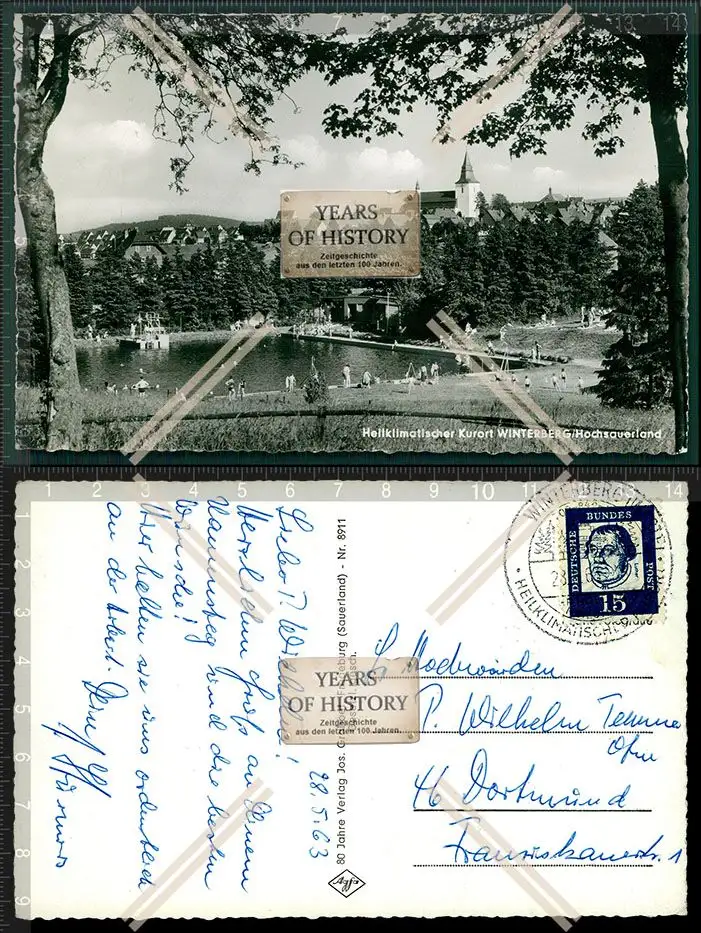 YEARS
OF HISTORY
Zeitgeschichte
aus den letzten 100 Jahren.
Heilklimatischer Kurort WINTERBERG/Hochsauerland
1 2 3 4 5 6 7 8 9 10 11 12 13 14
Lieber P. Wilhelm!
Herzlichen Gruß an Deinem
Namenstag und die besten
Wünsche!
Hier halten sie uns ordentlich
an der Arbeit. Dein
28.5.63
80 Jahre Verlag Jos. (Sauerland) - Nr. 8911
YEARS
OF HISTORY
Zeitgeschichte
aus den letzten 100 Jahren.
WINTERBERG
HEILKLIMATISCHER
DEUTSCHE
BUNDES
POST
15
Hochwürden
P. Wilhelm
Ofm
46 Dortmund
Franziskanerstr. 1